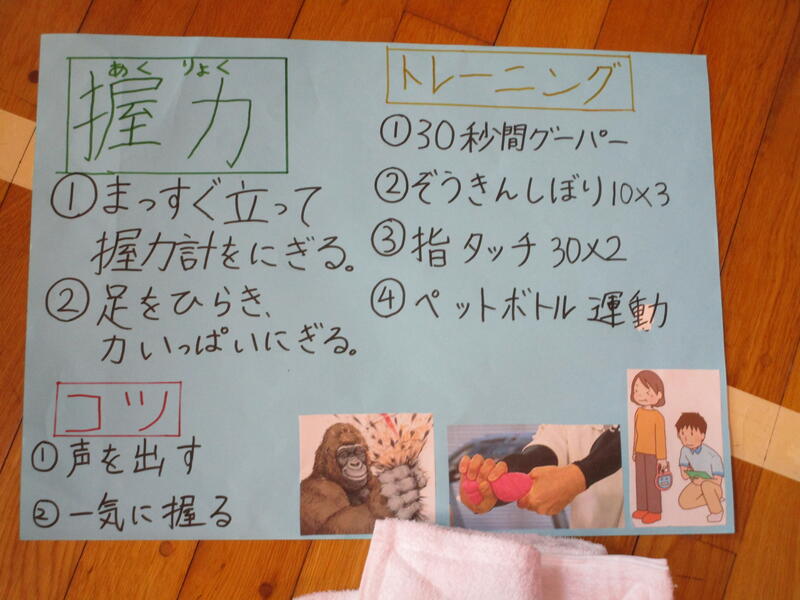 あくりょく
握力
①まっすぐ立って
握力計をにぎる。
②足をひらき、
力いっぱいにぎる。
コツ
①声を出す
②一気に握る
トレーニング
①30秒間グーパー
②ぞうきんしぼり10×3
③指タッチ30×2
④ペットボトル運動